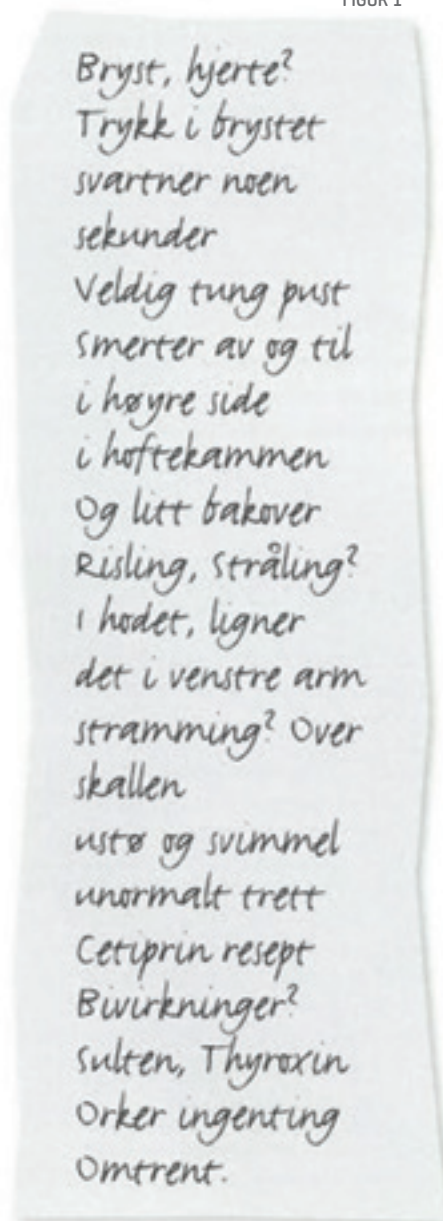 FIGUR 1
Bryst, hjerte?
Trykk i brystet
svartner noen
sekunder
Veldig tung pust
Smerter av og til
i høyre side
i hoftekammen
Og litt bakover
Risling, Stråling?
I hodet, ligner
det i venstre arm
stramming? Over
skallen
ustø og svimmel
unormalt trett
Cetiprin resept
Bivirkninger?
Sulten, Thyroxin
Orker ingenting
Omtrent.